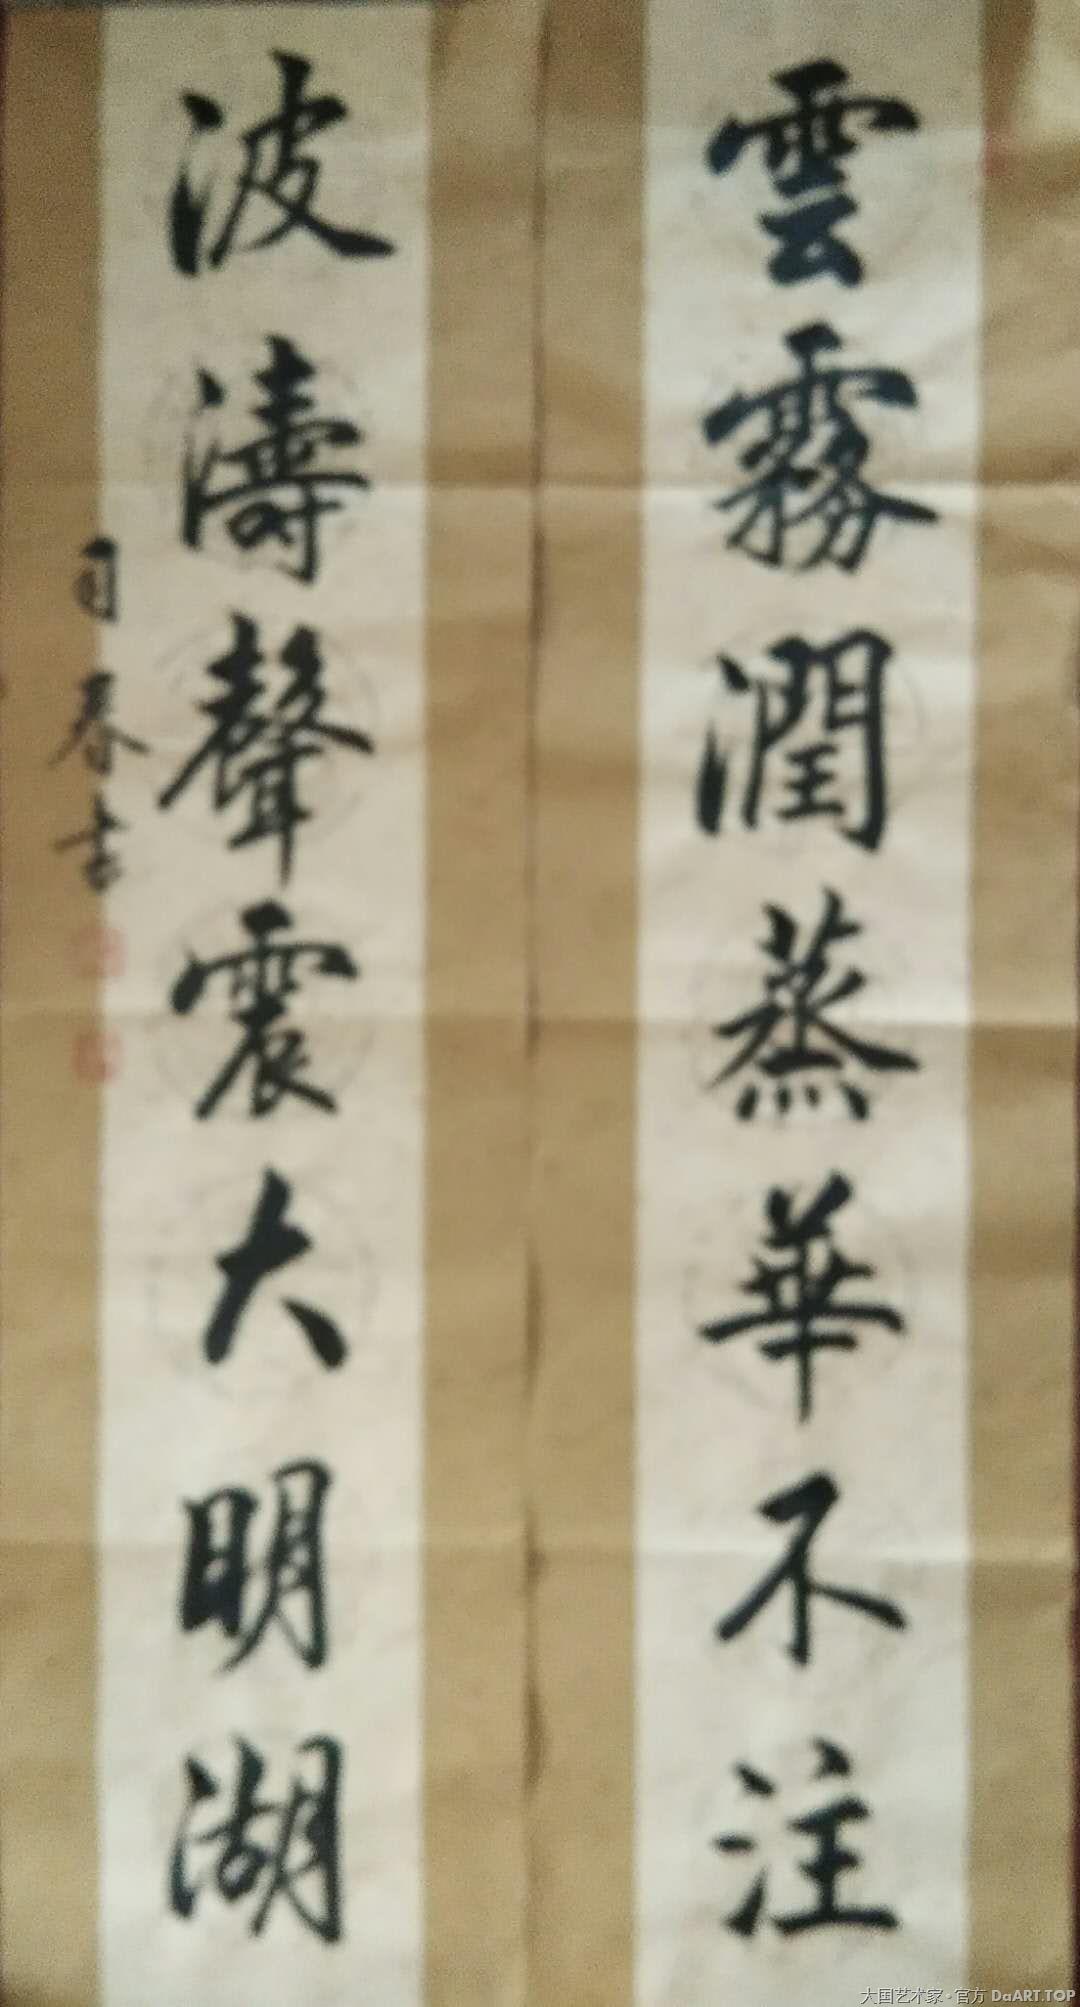 雲霧潤蒸華不注
波濤聲震大明湖
春书
大国艺术家·官方 DaART.TOP